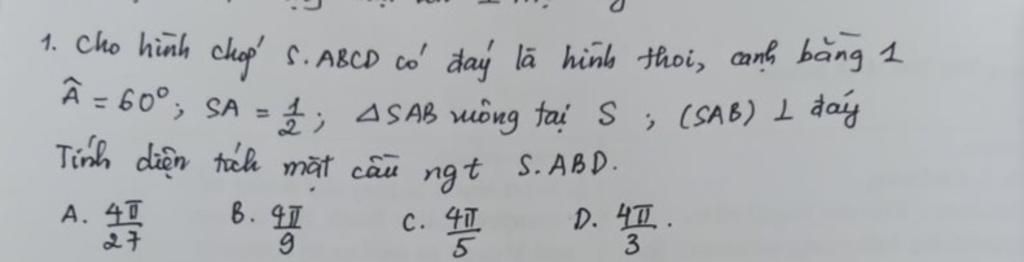 1. Cho hình chóp S.ABCD có đáy là hình thoi, cạnh bằng 1
Â = 60°; SA = 1/2; ΔSAB vuông tại S; (SAB) ⊥ đáy
Tính diện tích mặt cầu ngt S.ABD.
A. 4π/27 B. 4π/9 C. 4π/5 D. 4π/3.